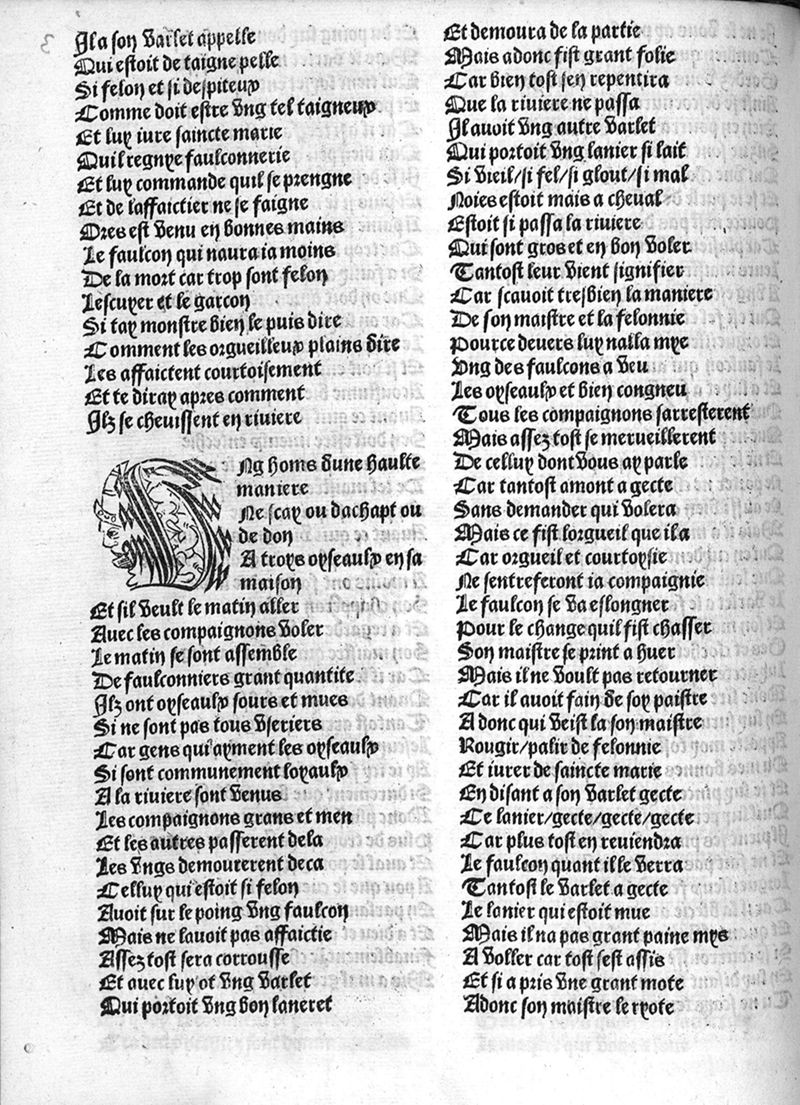 Il a son varlet appelle
Qui estoit de taigne pelle
Si felon et si despiteux
Comme doit estre ung tel taigneux
Et luy iure saincte marie
Quil regnye faulconnerie
Et luy commande quil se prengne
Et de laffaictier ne se faigne
Ores est venu en bonnes mains
Le faulcon qui naura ia moins
De la mort car trop sont felon
Lescuyer et le garcon
Si tay monstre bien le puis dire
Comment les orgueilleux plains dire
Les affaictent courtoisement
Et te diray apres comment
Ilz se chevissent en riviere
Ung homs dune haulte
maniere
Ne scay ou dachapt ou
de don
A troys oyseaulx en sa
maison
Et sil veult le matin aller
Avec les compaignons voler
Le matin se sont assemble
De faulconniers grant quantite
Ilz ont oyseaulx sours et mues
Si ne sont pas tous useriers
Car gens qui ayment les oyseaulx
Si sont communement loyaulx
A la riviere sont venus
Les compaignons grans et men
Et les autres passerent dela
Les ungs demourerent deca
Celluy qui estoit si felon
Avoit sur le poing ung faulcon
Mais ne lavoit pas affaictie
Assez tost sera corrousse
Et avec luy ot ung varlet
Qui portoit ung bon laneret
Et demoura de la partie
Mais adonc fist grant folie
Car bien tost sen repentira
Que la riviere ne passa
Il avoit ung autre varlet
Qui portoit ung lanier si lait
Si vieil/si fel/si glout/si mal
Noies estoit mais a cheval
Estoit si passa la riviere
Qui sont gros et en bon voler
Tantost leur vient signifier
Car scavoit tresbien la maniere
De son maistre et la felonnie
Pource devers luy nalla mye
Ung des faulcons a veu
Les oyseaulx et bien congneu
Tous les compaignons sarresterent
Mais assez tost se merveillerent
De celluy dont vous ay parle
Car tantost amont a gecte
Sans demander qui volera
Mais ce fist lorgueil que il a
Car orgueil et courtoysie
Ne sentreferont ia compaignie
Le faulcon se va eslongner
Pour le change quil fist chasser
Son maistre se print a huer
Mais il ne voult pas retourner
Car il avoit fain de soy paistre
Adonc qui veist la son maistre
Rougir/palir de felonnie
Et iurer de saincte marie
En disant a son varlet gecte
Ce lanier/gecte/gecte/gecte
Car plus tost en reviendra
Le faulcon quant il le verra
Tantost le varlet a gecte
Le lanier qui estoit mue
Mais il na pas grant paine mys
A voller car tost sest assis
Et si a pris une grant mote
Adonc son maistre le ryote